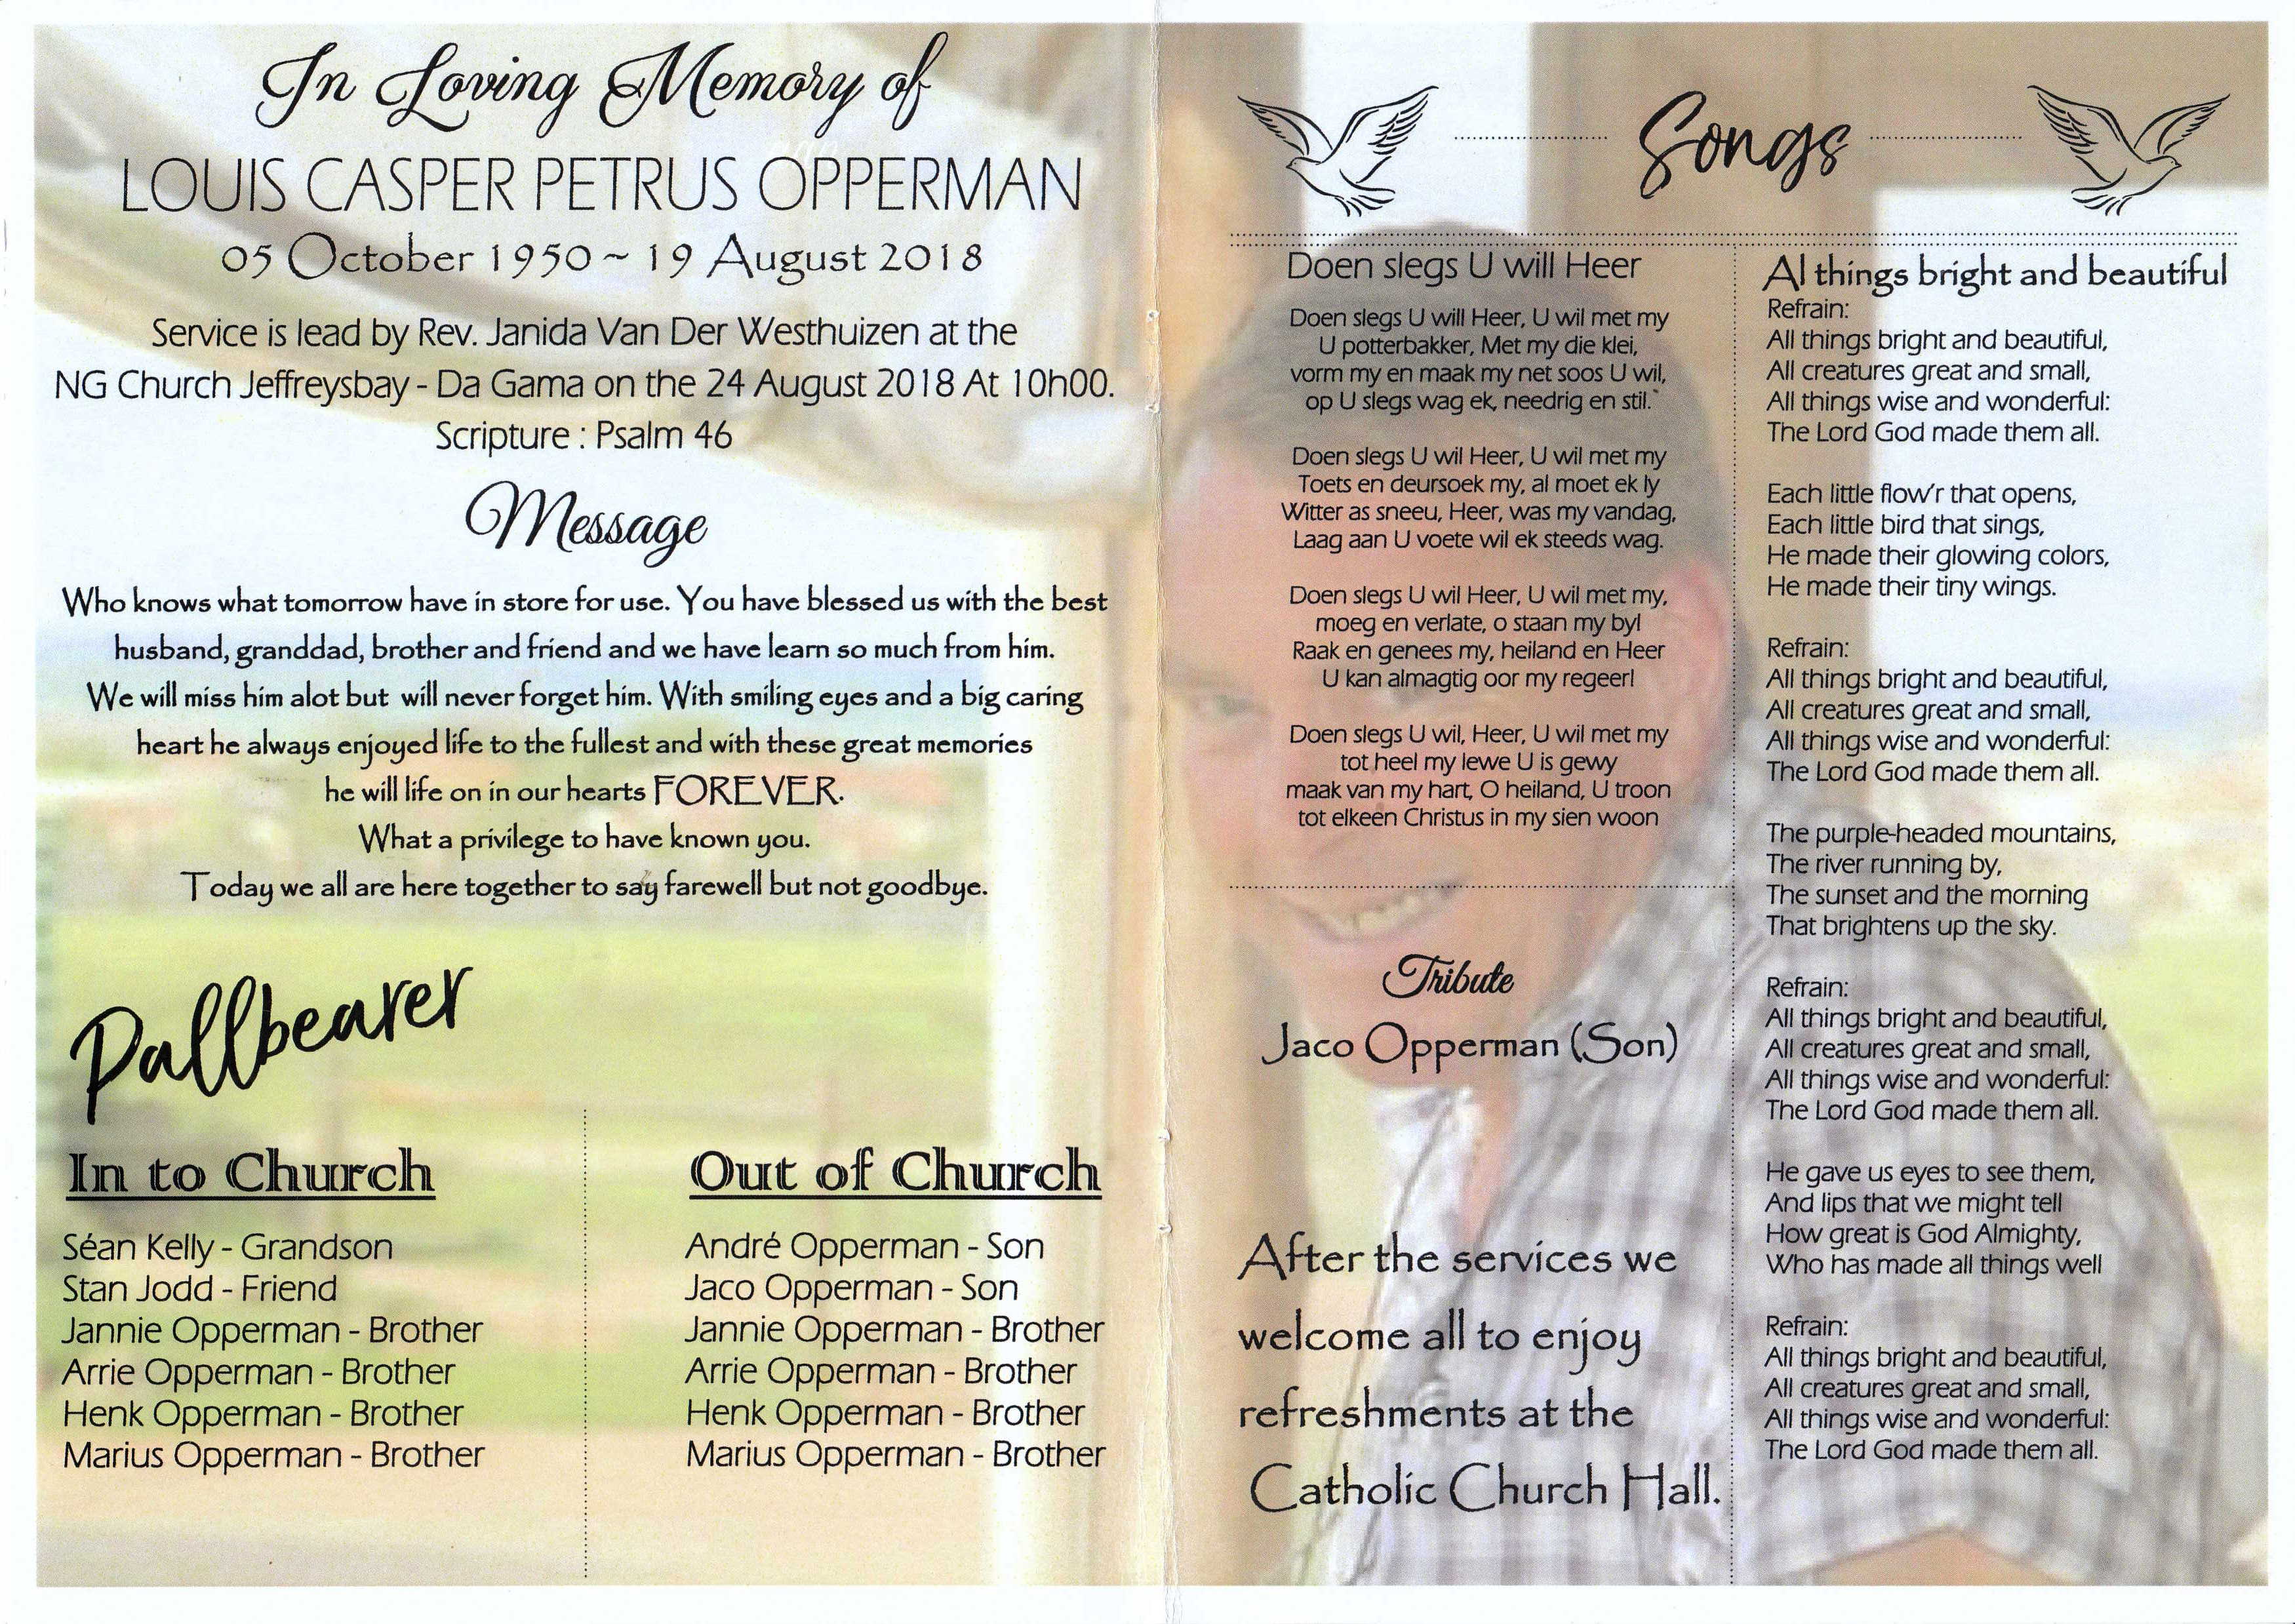 In Loving Memory of
LOUIS CASPER PETRUS OPPERMAN
05 October 1950 ~ 19 August 2018
Service is lead by Rev. Janida Van Der Westhuizen at the
NG Church Jeffreysbay - Da Gama on the 24 August 2018 At 10h00.
Scripture : Psalm 46
Message
Who knows what tomorrow have in store for use. You have blessed us with the best
husband, granddad, brother and friend and we have learn so much from him.
We will miss him alot but will never forget him. With smiling eyes and a big caring
heart he always enjoyed life to the fullest and with these great memories
he will life on in our hearts FOREVER.
What a privilege to have known you.
Today we all are here together to say farewell but not goodbye.
Pallbearer
In to Church
Séan Kelly - Grandson
Stan Jodd - Friend
Jannie Opperman - Brother
Arrie Opperman - Brother
Henk Opperman - Brother
Marius Opperman - Brother
Out of Church
André Opperman - Son
Jaco Opperman - Son
Jannie Opperman - Brother
Arrie Opperman - Brother
Henk Opperman - Brother
Marius Opperman - Brother
Songs
Doen slegs U will Heer
Doen slegs U will Heer, U wil met my
U potterbakker, Met my die klei,
vorm my en maak my net soos U wil,
op U slegs wag ek, needrig en stil.`
Doen slegs U wil Heer, U wil met my
Toets en deursoek my, al moet ek ly
Witter as sneeu, Heer, was my vandag,
Laag aan U voete wil ek steeds wag.
Doen slegs U wil Heer, U wil met my,
moeg en verlate, o staan my by!
Raak en genees my, heiland en Heer
U kan almagtig oor my regeer!
Doen slegs U wil, Heer, U wil met my
tot heel my lewe U is gewy
maak van my hart, O heiland, U troon
tot elkeen Christus in my sien woon
Tribute
Jaco Opperman (Son)
After the services we
welcome all to enjoy
refreshments at the
Catholic Church Hall.
Al things bright and beautiful
Refrain:
All things bright and beautiful,
All creatures great and small,
All things wise and wonderful:
The Lord God made them all.
Each little flow'r that opens,
Each little bird that sings,
He made their glowing colors,
He made their tiny wings.
Refrain:
All things bright and beautiful,
All creatures great and small,
All things wise and wonderful:
The Lord God made them all.
The purple-headed mountains,
The river running by,
The sunset and the morning
That brightens up the sky.
Refrain:
All things bright and beautiful,
All creatures great and small,
All things wise and wonderful:
The Lord God made them all.
He gave us eyes to see them,
And lips that we might tell
How great is God Almighty,
Who has made all things well
Refrain:
All things bright and beautiful,
All creatures great and small,
All things wise and wonderful:
The Lord God made them all.